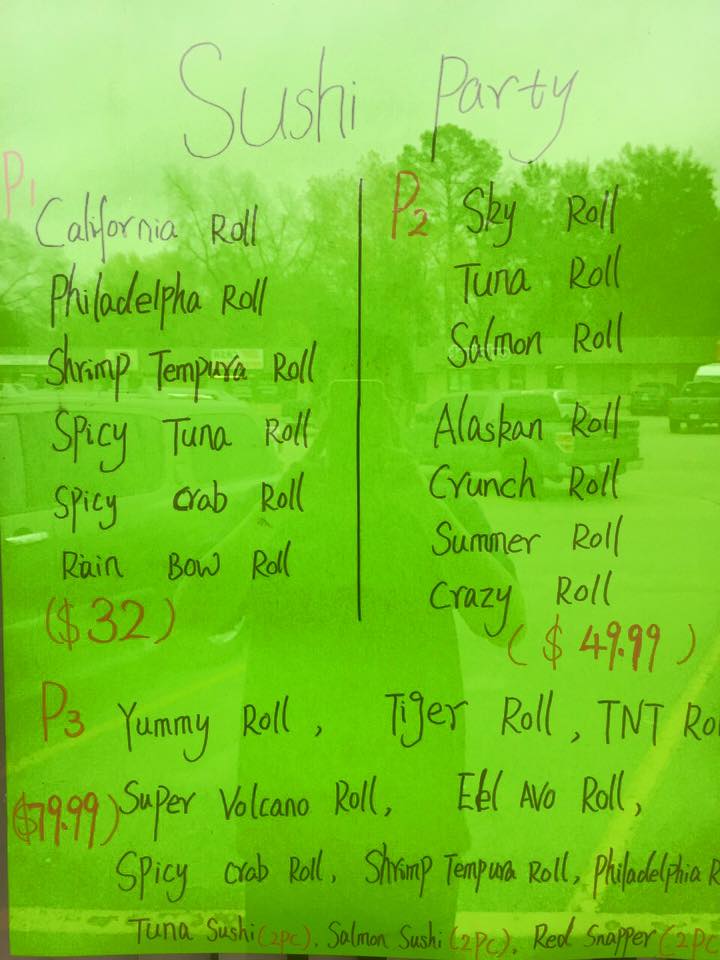 Sushi Party
P1
California Roll
Philadelpha Roll
Shrimp Tempura Roll
Spicy Tuna Roll
Spicy Crab Roll
Rain Bow Roll
($32)
P2 Sky Roll
Tuna Roll
Salmon Roll
Alaskan Roll
Crunch Roll
Summer Roll
Crazy Roll
($ 49.99)
P3 Yummy Roll, Tiger Roll, TNT Ro
($79.99) Super Volcano Roll, Eel Avo Roll,
Spicy Crab Roll, Shrimp Tempura Roll, Philadelphia R
Tuna Sushi (2pc), Salmon Sushi (2pc), Red Snapper (2pc